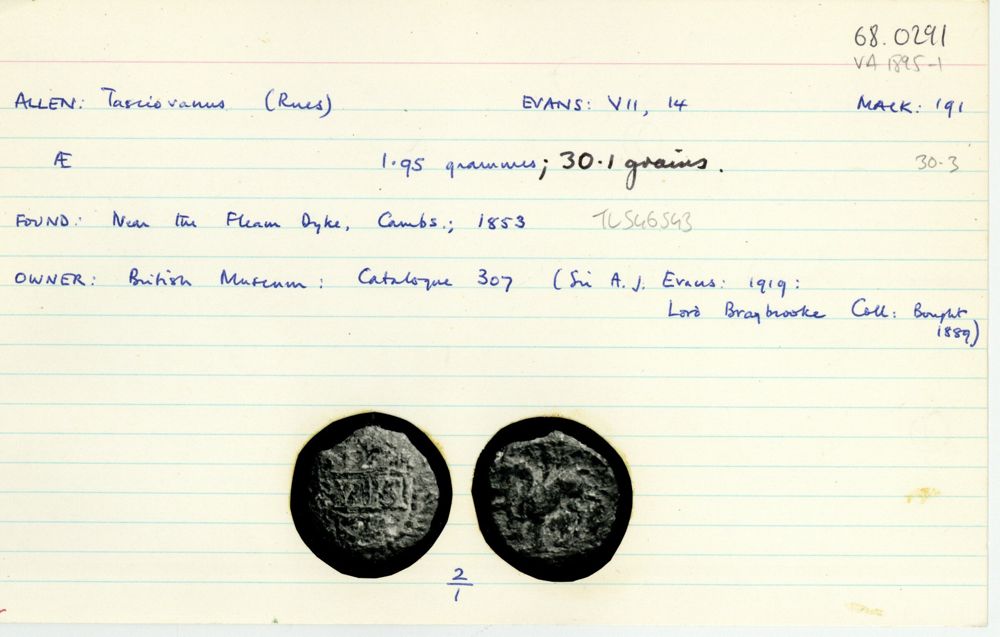 68.0291
VA 1895-1
ALLEN: Tasciovanus (Rues) EVANS: VII, 14 MACK: 191
Æ 1.95 grammes; 30.1 grains. 30.3
FOUND: Near the Fleam Dyke, Cambs.; 1853 TL546543
OWNER: British Museum: Catalogue 307 (Sir A.J. Evans: 1919:
Lord Braybrooke Coll: Bought
1889)
2
1